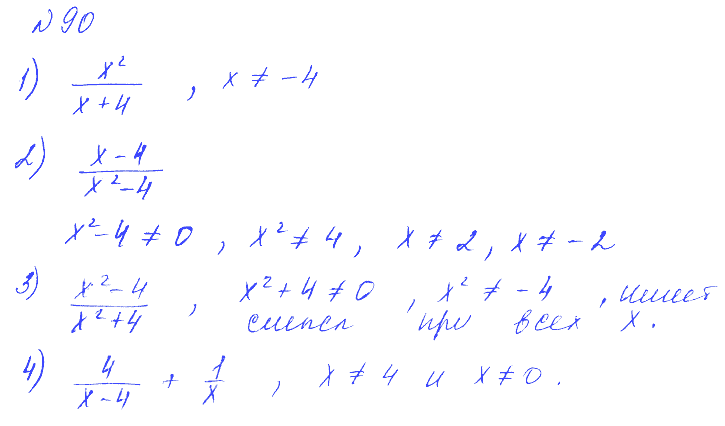 № 90
1) x²/(x+4) , x ≠ −4
2) (x−4)/(x²−4)
x²−4 ≠ 0 , x² ≠ 4, x ≠ 2, x ≠ −2
3) (x²−4)/(x²+4) , x²+4 ≠ 0 , x² ≠ −4 , имеет
смысл при всех x.
4) 4/(x−4) + 1/x , x ≠ 4 и x ≠ 0.